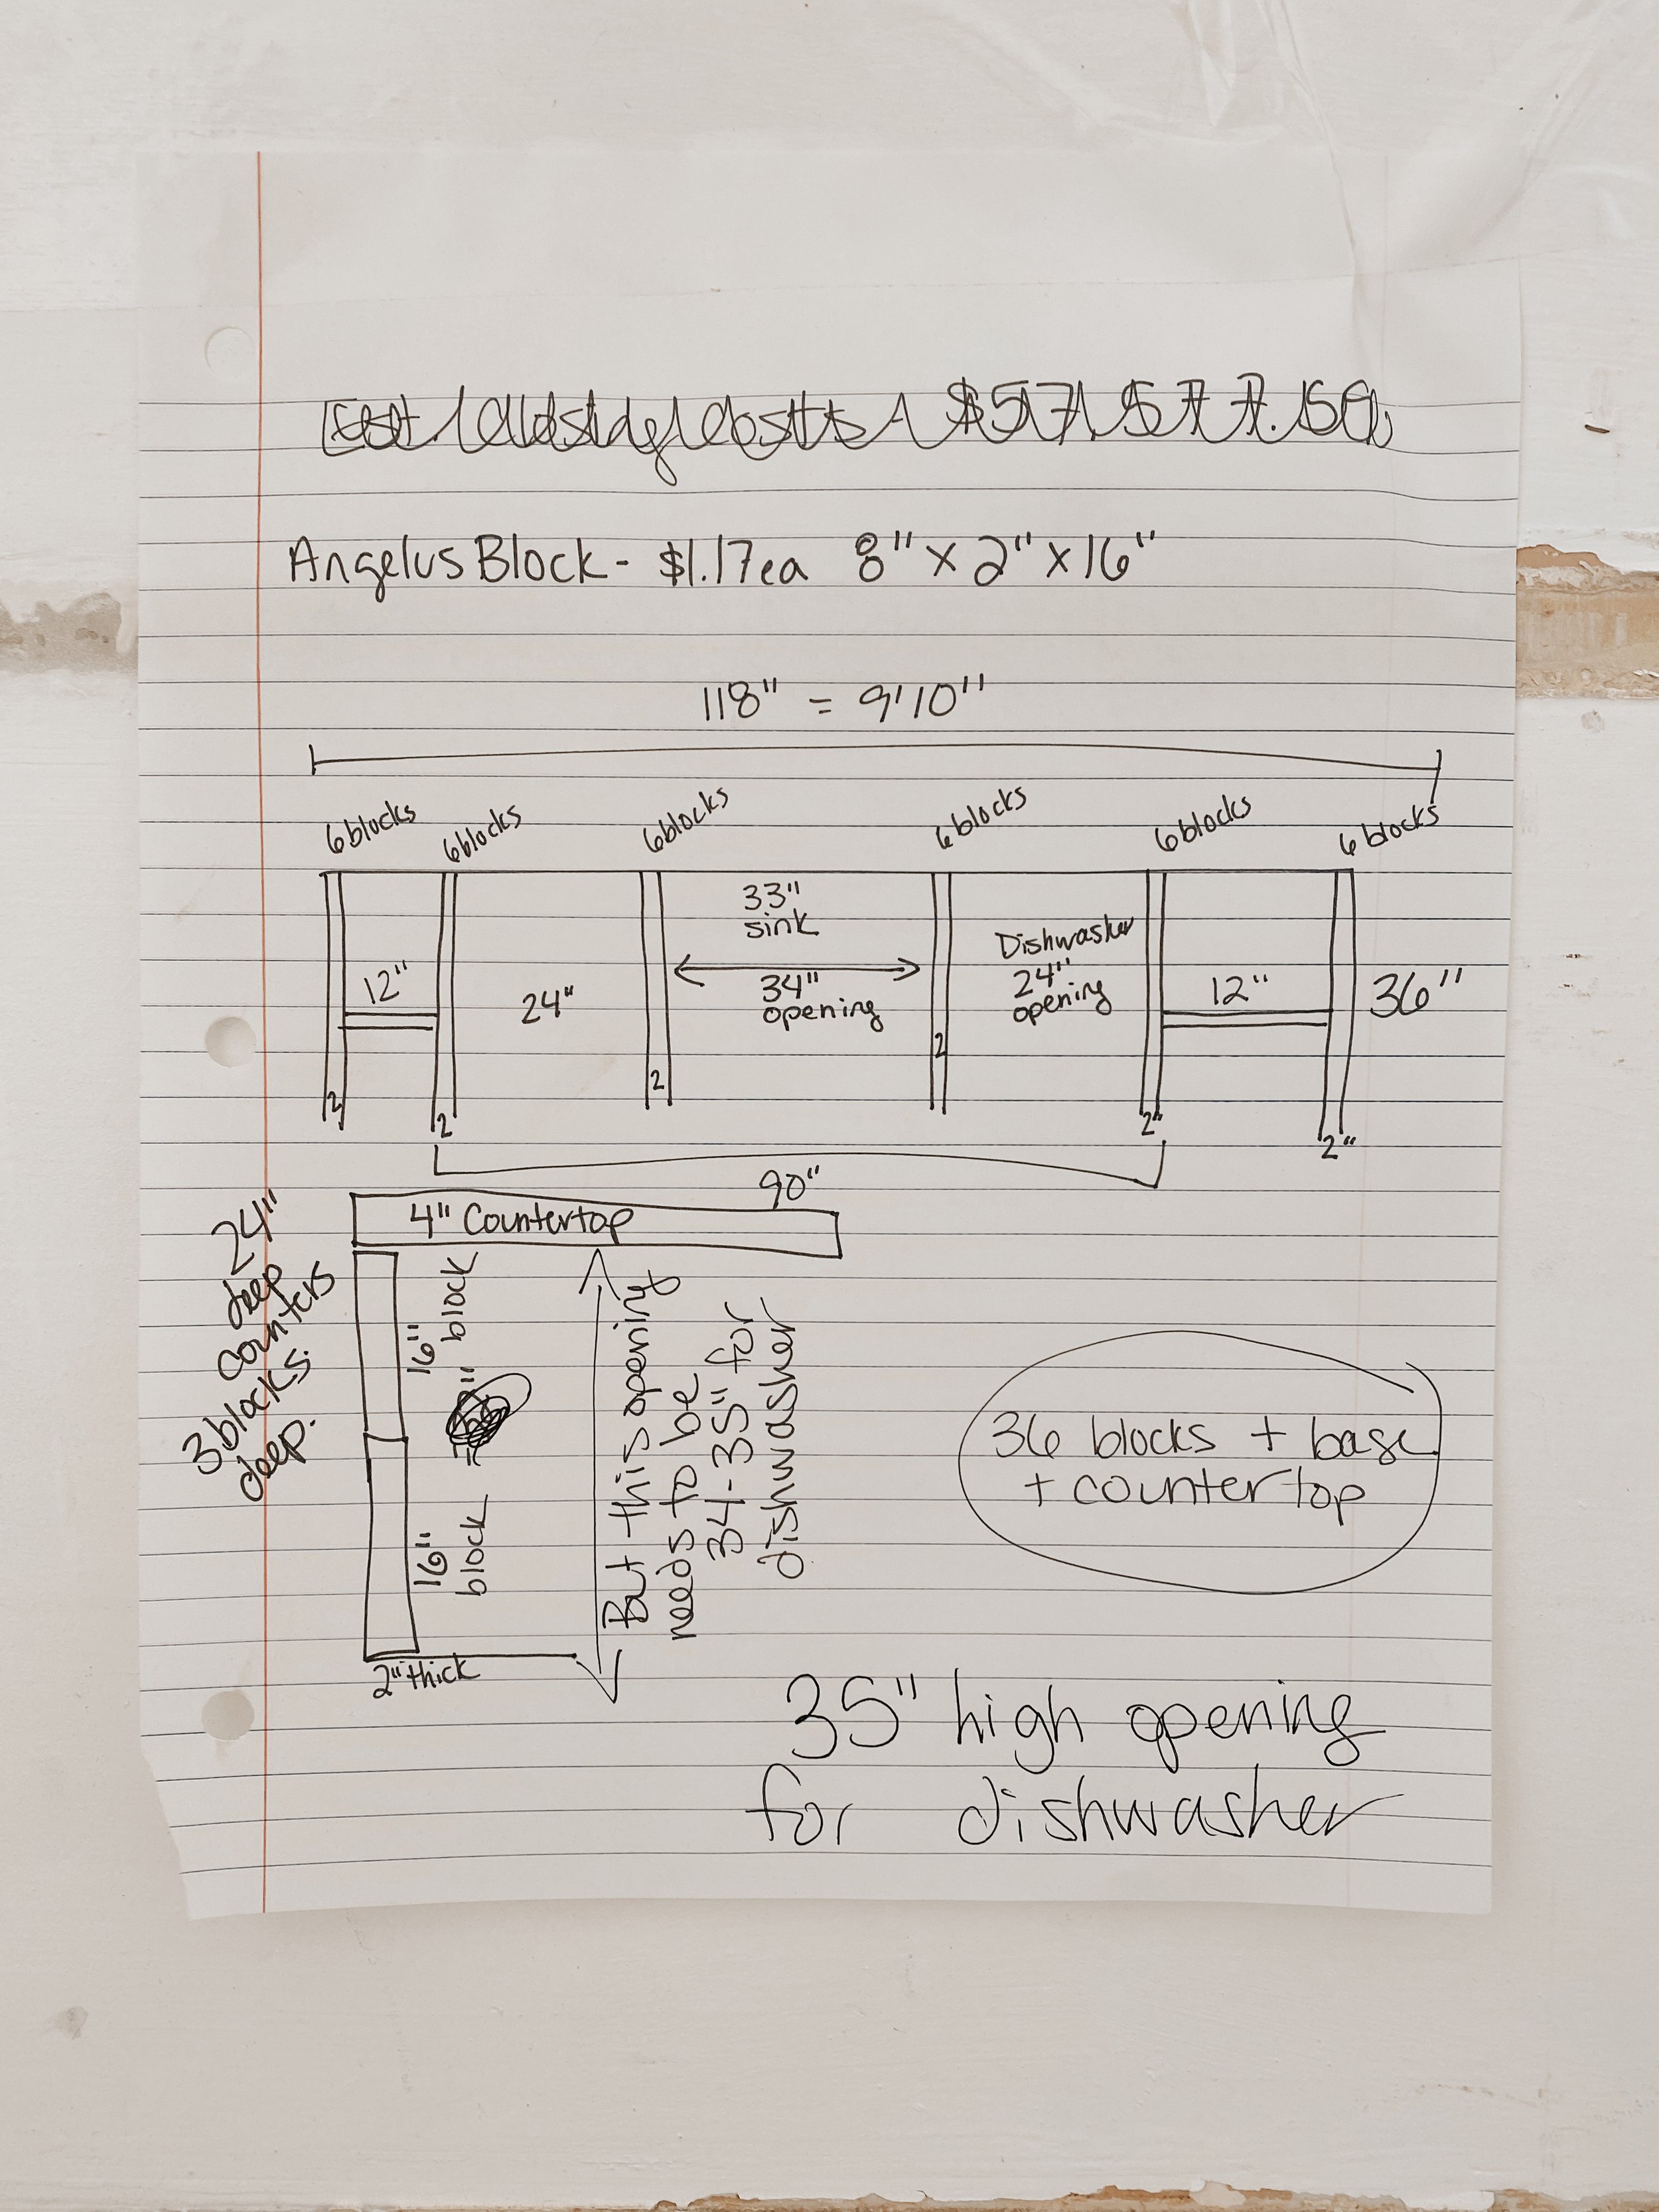 Angelus Block - $1.17ea 8" x 2" x 16"
118" = 9'10"
6 blocks
6 blocks
6 blocks
6 blocks
6 blocks
6 blocks
12"
24"
33"
sink
34"
opening
Dishwasher
24"
opening
12"
36"
2
2
2
2
2"
2"
90"
4" Countertop
24"
deep
counters
3 blocks
deep.
16"
block
16"
block
2" thick
But this opening
needs to be
34-35" for
dishwasher
36 blocks + base
+ countertop
35" high opening
for dishwasher